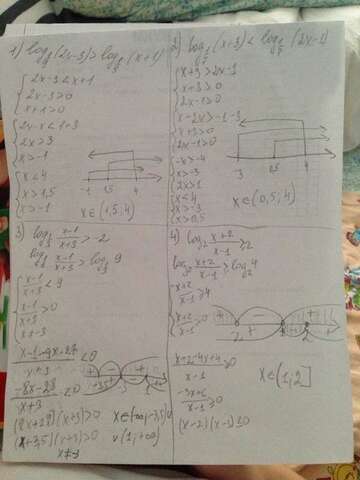 1) log 1/3 (2x-3) > log 1/3 (x+1)
2x-3 < x+1
2x-3 > 0
x+1 > 0
2x-x < 1+3
2x > 3
x > -1
x < 4
x > 1,5
x > -1
-1 1,5 4
x ∈ (1,5, 4)
2) (x+3) < (2x-1)
x+3 > 2x-1
x+3 > 0
2x-1 > 0
x-2x > -1-3
x+3 > 0
2x-1 > 0
-x > -4
x > -3
2x > 1
x < 4
x > -3
x > 0,5
3 0,5 4
x ∈ (0,5, 4)
3) log 1/3 (x-1)/(x+3) > -2
log 1/3 (x-1)/(x+3) > log 1/3 9
(x-1)/(x+3) < 9
(x-1)/(x+3) > 0
x ≠ -3
(x-1-9x-27)/(x+3) < 0
(-8x-28)/(x+3) < 0
(8x+28)(x+3) > 0
(x+3,5)(x+3) > 0
x ≠ -3
x ∈ (-∞, -3,5) ∪
∪ (1, +∞)
4) log2 (x+2)/(x-1) ≥ 2
log2 (x+2)/(x-1) ≥ log2 4
(x+2)/(x-1) ≥ 4
(x+2)/(x-1) > 0
(x+2-4x+4)/(x-1) ≥ 0
(-3x+6)/(x-1) ≥ 0
(x-2)(x-1) ≤ 0
x ∈ (1, 2]